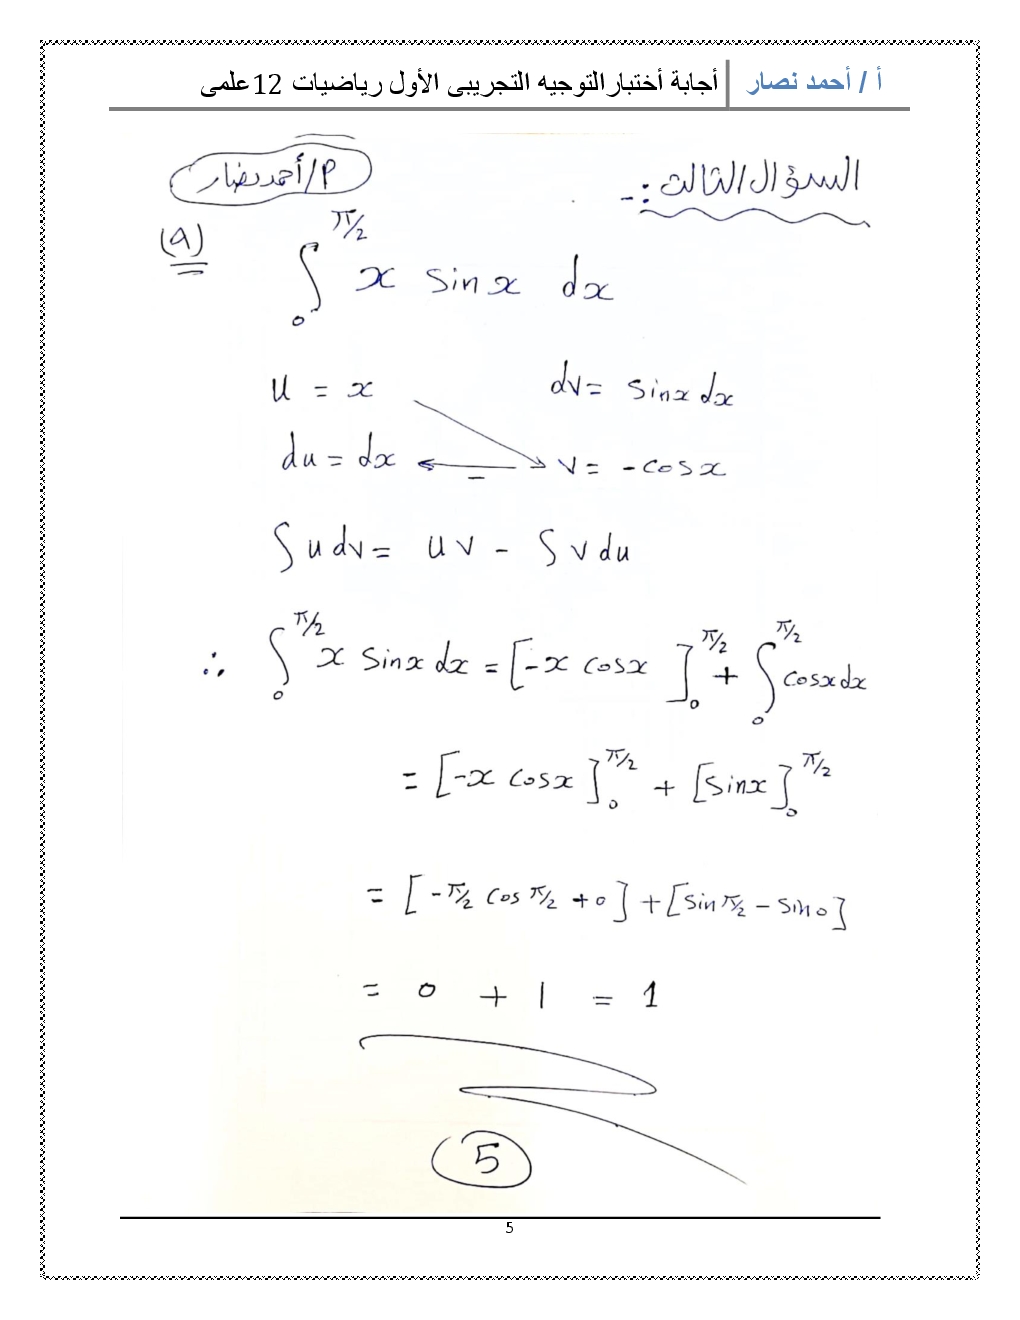 أ / أحمد نصار أجابة أختبار التوجيه التجريبى الأول رياضيات 12 علمى
السؤال الثالث :-
أ/أحمد نصار
(a)
∫₀^{π/2} x sin x dx
u = x dv = sin x dx
du = dx v = -cos x
-
∫ u dv = u v - ∫ v du
∴ ∫₀^{π/2} x sin x dx = [-x cos x]₀^{π/2} + ∫₀^{π/2} cos x dx
= [-x cos x]₀^{π/2} + [sin x]₀^{π/2}
= [-π/2 cos π/2 + 0] + [sin π/2 - sin 0]
= 0 + 1 = 1
5
5